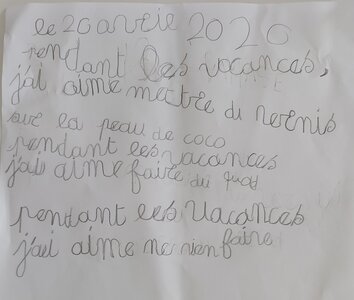 le 20 avrie 2020
pendant les vacances,
j'ai aime mettre du vernis
sur la peau de coco
pendant les vacances
j'ai aime faire du quad
pendant les vacances
j'ai aime ne rien faire